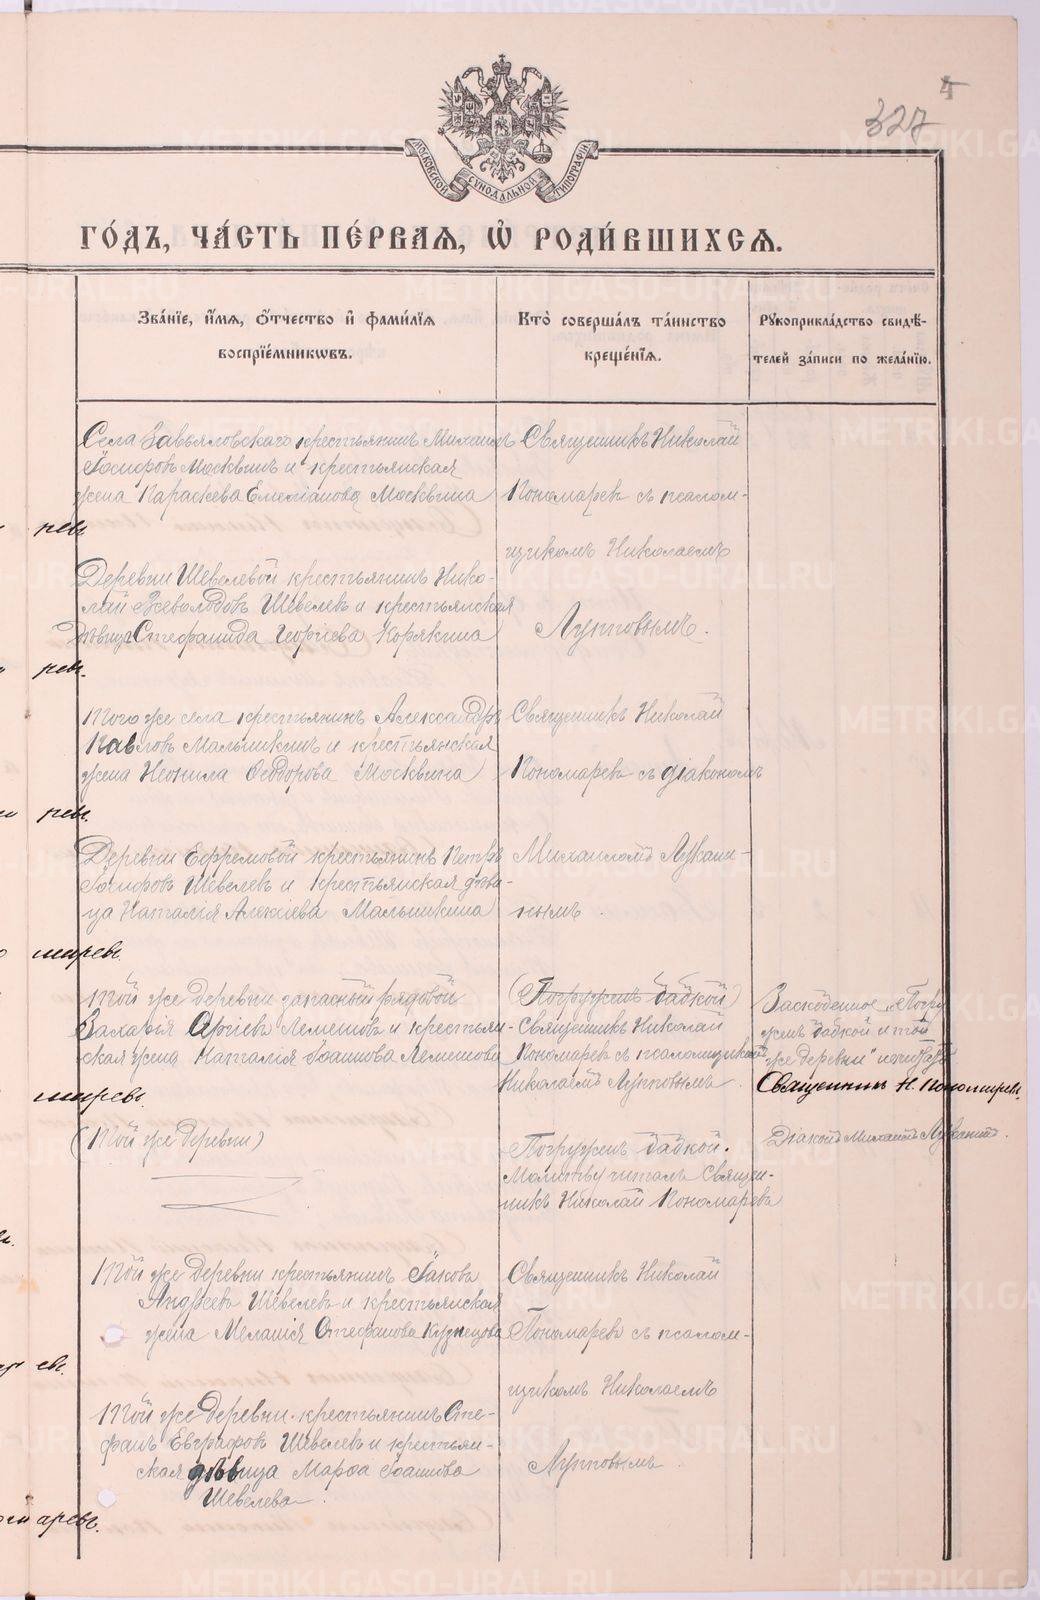 327
4
МОСКОВСКОЙ СѴНОДАЛЬНОЙ ТИПОГРАФІИ
ГО́ДЪ, ЧА́СТЬ ПЕ́РВАѦ, Ѡ҆ РОДИ́ВШИХСѦ.
Зва́нїе, и҆́мѧ, ѻ҆́тчество и҆ фами́лїѧ
воспрїе́мникѡвъ.
Кто̀ соверша́лъ та́инство
креще́нїѧ.
Рꙋкоприкла́дство свидѣ́-
телей за́писи по жела́нїю.
Села Завьяловскаго крестьянинъ Михаилъ
Іосифовъ Москвинъ и крестьянская
жена Параскева Емеліанова Москвина
Священникъ Николай
Пономаревъ съ псалом-
щикомъ Николаемъ
Лупповымъ.
ревъ
Деревни Шевелевой крестьянинъ Нико-
лай Всеволодовъ Шевелевъ и крестьянская
дѣвица Стефанида Георгіева Корякина
ревъ.
Того же села крестьянинъ Александръ
Павловъ Малышкинъ и крестьянская
жена Неонила Ѳеодорова Москвина
Священникъ Николай
Пономаревъ съ діакономъ
Михаиломъ Лукани-
нымъ.
ревъ.
Деревни Ефремовой крестьянинъ Петръ
Іосифовъ Шевелевъ и крестьянская дѣви-
ца Наталія Алексіева Малышкина
маревъ.
Той же деревни запасный рядовой
Захарія Сергіевъ Лемешовъ и крестьян-
ская жена Наталія Іоаннова Лемешова
(Погруженъ бабкой)
Священникъ Николай
Пономаревъ съ псаломщикомъ
Николаемъ Лупповымъ.
Заскобенное „Погру
женъ бабкой и той
же деревни"
Священникъ Н. Пономаревъ.
Діаконъ Михаилъ Луканинъ.
маревъ.
(Той же деревни)
Погруженъ бабкой.
Молитву читалъ Священ-
никъ Николай Пономаревъ
Той же деревни крестьянинъ Іаковъ
Андреевъ Шевелевъ и крестьянская
жена Меланія Стефанова Кузнецова
Священникъ Николай
Пономаревъ съ псалом-
щикомъ Николаемъ
Лупповымъ.
евъ.
Той же деревни крестьянинъ Сте-
фанъ Евграфовъ Шевелевъ и крестьян-
ская дѣвица Марѳа Іоаннова
Шевелева.
омаревъ.